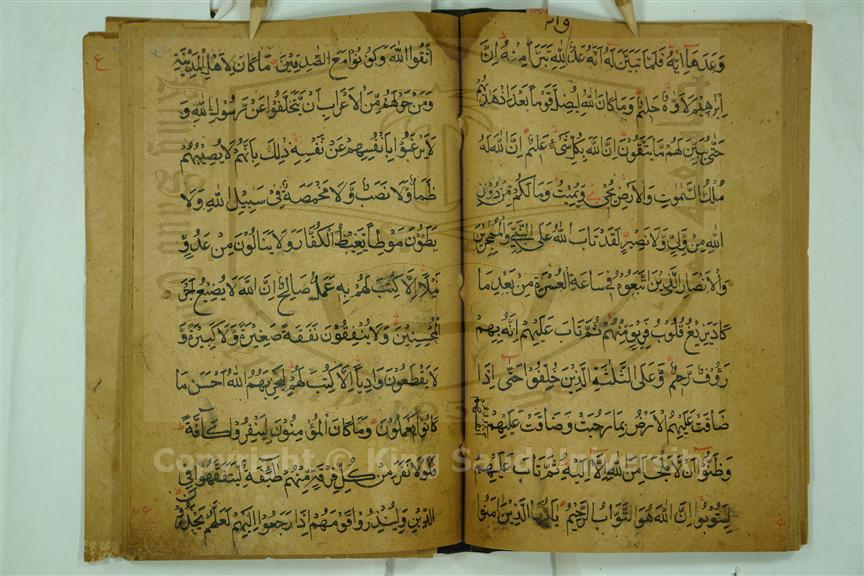 وَعَدَهَا إِيَّاهُ فَلَمَّا تَبَيَّنَ لَهُ أَنَّهُ عَدُوٌّ لِلَّهِ تَبَرَّأَ مِنْهُ إِنَّ
إِبْرَاهِيمَ لَأَوَّاهٌ حَلِيمٌ وَمَا كَانَ اللَّهُ لِيُضِلَّ قَوْمًا بَعْدَ إِذْ هَدَاهُمْ
حَتَّى يُبَيِّنَ لَهُمْ مَا يَتَّقُونَ إِنَّ اللَّهَ بِكُلِّ شَيْءٍ عَلِيمٌ إِنَّ اللَّهَ لَهُ
مُلْكُ السَّمٰوٰتِ وَالْأَرْضِ يُحْيِي وَيُمِيتُ وَمَا لَكُمْ مِنْ دُونِ
اللَّهِ مِنْ وَلِيٍّ وَلَا نَصِيرٍ لَقَدْ تَابَ اللَّهُ عَلَى النَّبِيِّ وَالْمُهٰجِرِينَ
وَالْأَنْصَارِ الَّذِينَ اتَّبَعُوهُ فِي سَاعَةِ الْعُسْرَةِ مِنْ بَعْدِ مَا
كَادَ يَزِيغُ قُلُوبُ فَرِيقٍ مِنْهُمْ ثُمَّ تَابَ عَلَيْهِمْ إِنَّهُ بِهِمْ
رَؤُفٌ رَحِيمٌ وَعَلَى الثَّلٰثَةِ الَّذِينَ خُلِّفُوا حَتَّى إِذَا
ضَاقَتْ عَلَيْهِمُ الْأَرْضُ بِمَا رَحُبَتْ وَضَاقَتْ عَلَيْهِمْ
وَظَنُّوا أَنْ لَا مَلْجَأَ مِنَ اللَّهِ إِلَّا إِلَيْهِ ثُمَّ تَابَ عَلَيْهِمْ
لِيَتُوبُوا إِنَّ اللَّهَ هُوَ التَّوَّابُ الرَّحِيمُ يٰأَيُّهَا الَّذِينَ آمَنُوا
اتَّقُوا اللَّهَ وَكُونُوا مَعَ الصّٰدِقِينَ مَا كَانَ لِأَهْلِ الْمَدِينَةِ
وَمَنْ حَوْلَهُمْ مِنَ الْأَعْرَابِ أَنْ يَتَخَلَّفُوا عَنْ رَسُولِ اللَّهِ وَ
لَا يَرْغَبُوا بِأَنْفُسِهِمْ عَنْ نَفْسِهِ ذٰلِكَ بِأَنَّهُمْ لَا يُصِيبُهُمْ
ظَمَأٌ وَلَا نَصَبٌ وَلَا مَخْمَصَةٌ فِي سَبِيلِ اللَّهِ وَلَا
يَطَؤُنَ مَوْطِئًا يَغِيظُ الْكُفَّارَ وَلَا يَنَالُونَ مِنْ عَدُوٍّ
نَيْلًا إِلَّا كُتِبَ لَهُمْ بِهِ عَمَلٌ صَالِحٌ إِنَّ اللَّهَ لَا يُضِيعُ أَجْرَ
الْمُحْسِنِينَ وَلَا يُنْفِقُونَ نَفَقَةً صَغِيرَةً وَلَا كَبِيرَةً وَ
لَا يَقْطَعُونَ وَادِيًا إِلَّا كُتِبَ لَهُمْ لِيَجْزِيَهُمُ اللَّهُ أَحْسَنَ مَا
كَانُوا يَعْمَلُونَ وَمَا كَانَ الْمُؤْمِنُونَ لِيَنْفِرُوا كَافَّةً
فَلَوْلَا نَفَرَ مِنْ كُلِّ فِرْقَةٍ مِنْهُمْ طَائِفَةٌ لِيَتَفَقَّهُوا فِي
الدِّينِ وَلِيُنْذِرُوا قَوْمَهُمْ إِذَا رَجَعُوا إِلَيْهِمْ لَعَلَّهُمْ يَحْذَرُونَ
Copyright © King Saud University